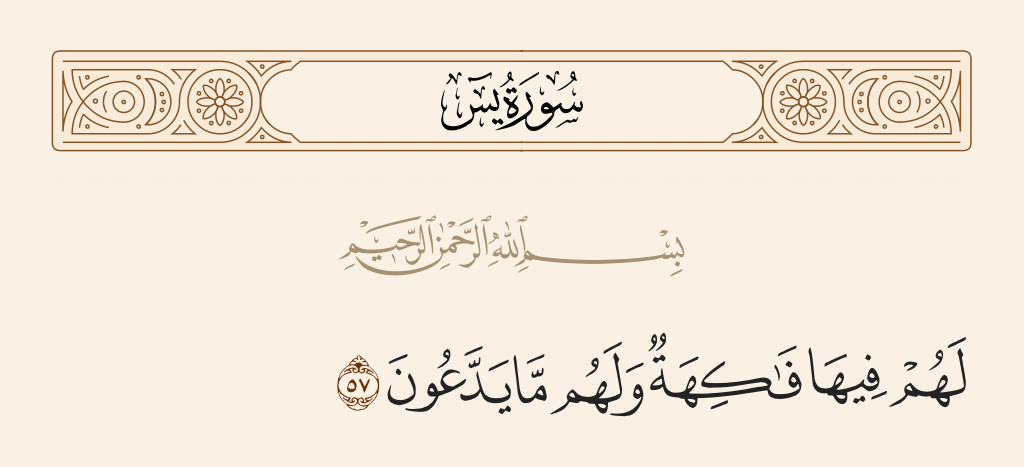 سُورَةُ يسٓ
بِسْمِ ٱللَّهِ ٱلرَّحْمَٰنِ ٱلرَّحِيمِ
لَهُمْ فِيهَا فَٰكِهَةٌ وَلَهُم مَّا يَدَّعُونَ ٥٧